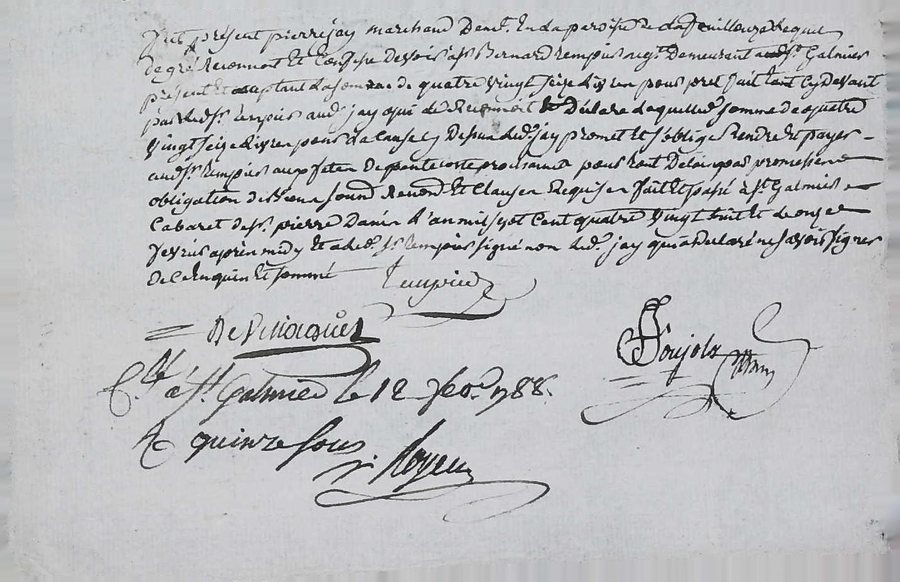 fut présent pierre jay marchand demt. en la paroisse de la feuillouze lequel
de gré Reconnoit et Confesse devoir a sr Bernard tempier negt. Demeurant a st. Galmier
présent et acceptant la somme de quatre vingt seize livres pour pret fait tant cy devant
par led. sr tempier aud. jay qui le Reconnoit Declare laquelle somme de quatre
vingt seize livres pour la cause cy dessus led. jay promet et s'oblige Rendre et payer
aud. sr tempier aux fetes de pentecote prochaines pour tout Delay par promesse
obligation de biens soumd Renond et Clauses Requises fait et passé a st. Galmier
Cabaret de sr. pierre l'an mil sept cent quatre vingt huit et le onze
fevrier après midy et a led. sr tempier signé non led. jay qui a declaré ne savoir signer
de ce enquis et sommé tempier
Pujols
Cllé. a st. Galmier le 12 fevr. 1788.
R quinze sous